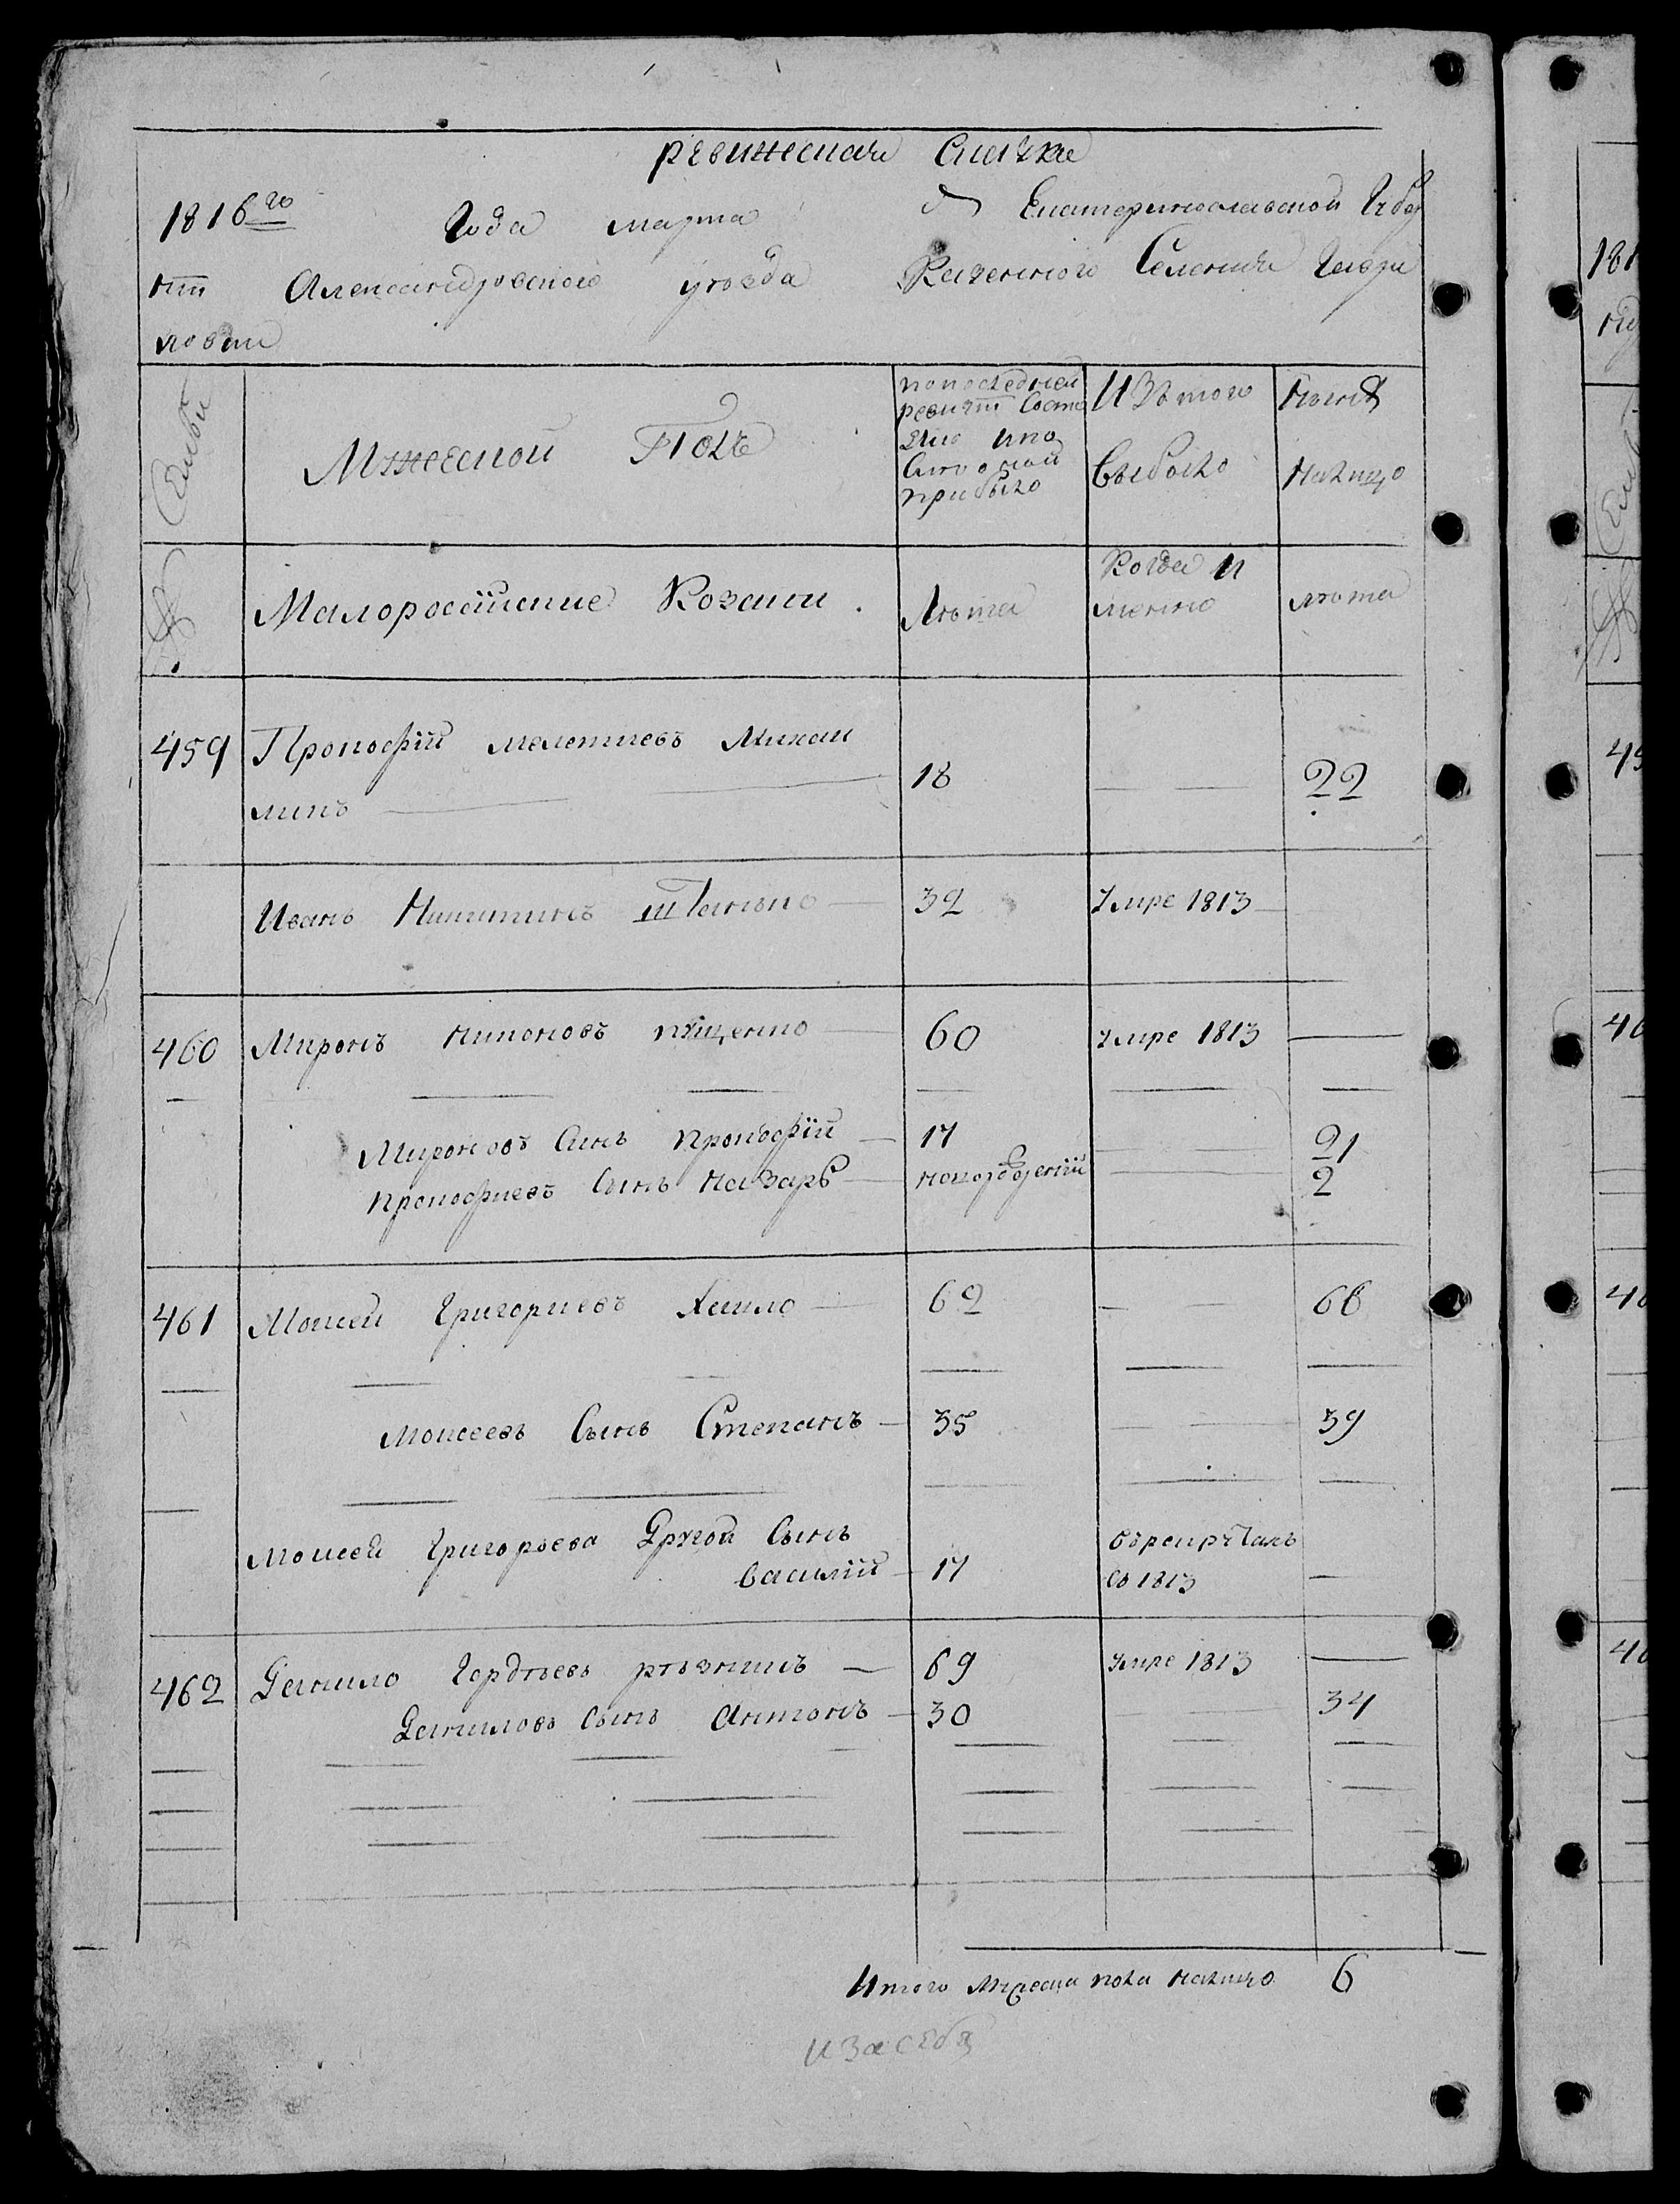 ревижеская Сказка
1816го Года марта Д Екатеринославской Губер
нии Александровского уезда Казенного Селения Гаври
ловки
Семьи
Мужеской Полъ
попоследней
ревизіи Состо
яло ипо
прибыло
Изъ того
выбыло
Ныне
налицо
№
Малороссійские Козаки.
Лѣта
Когда и
менно
лѣта
459 Прокофій мелетиевъ Михаи
ликъ 18 22
Иванъ Никитинъ Штанько 32 Умре 1813
460 Миронъ никоновъ пущенко 60 умре 1813
Мироновъ Синъ прокофій 17 21
прокофиевъ Синъ назаръ новорожденій 2
461 Моисей Григориевъ Хгило 62 66
Моисеевъ Сынъ Степанъ 35 39
Моисей Григорьева Другой Сынъ
василій 17
въ 1813
462 Данило Гордѣевъ рѣзникъ 69 умре 1813
Даниловъ Сынъ Антонъ 30 34
Итого Мужеска пола налицо 6
И За себя